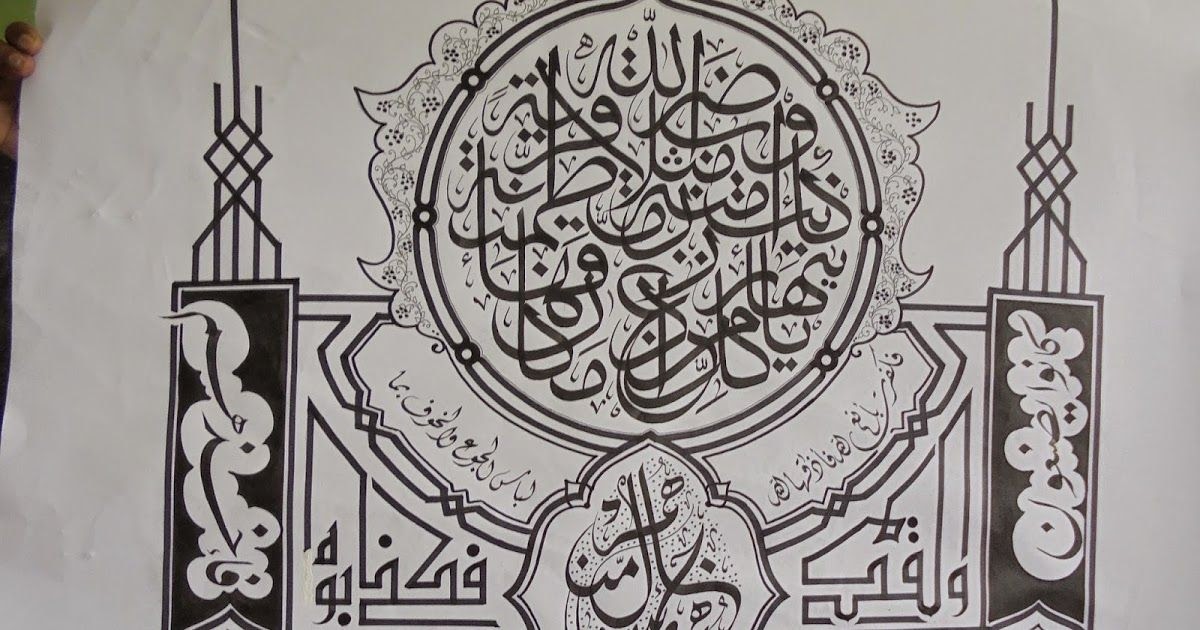 وضرب الله مثلا قرية كانت ءامنة مطمئنة يأتيها رزقها رغدا من كل مكان
فكفرت بأنعم الله فأذاقها الله
لباس الجوع والخوف بما
كانوا يصنعون
ولقد
رسول منهم
فكذبوه
فأخذهم